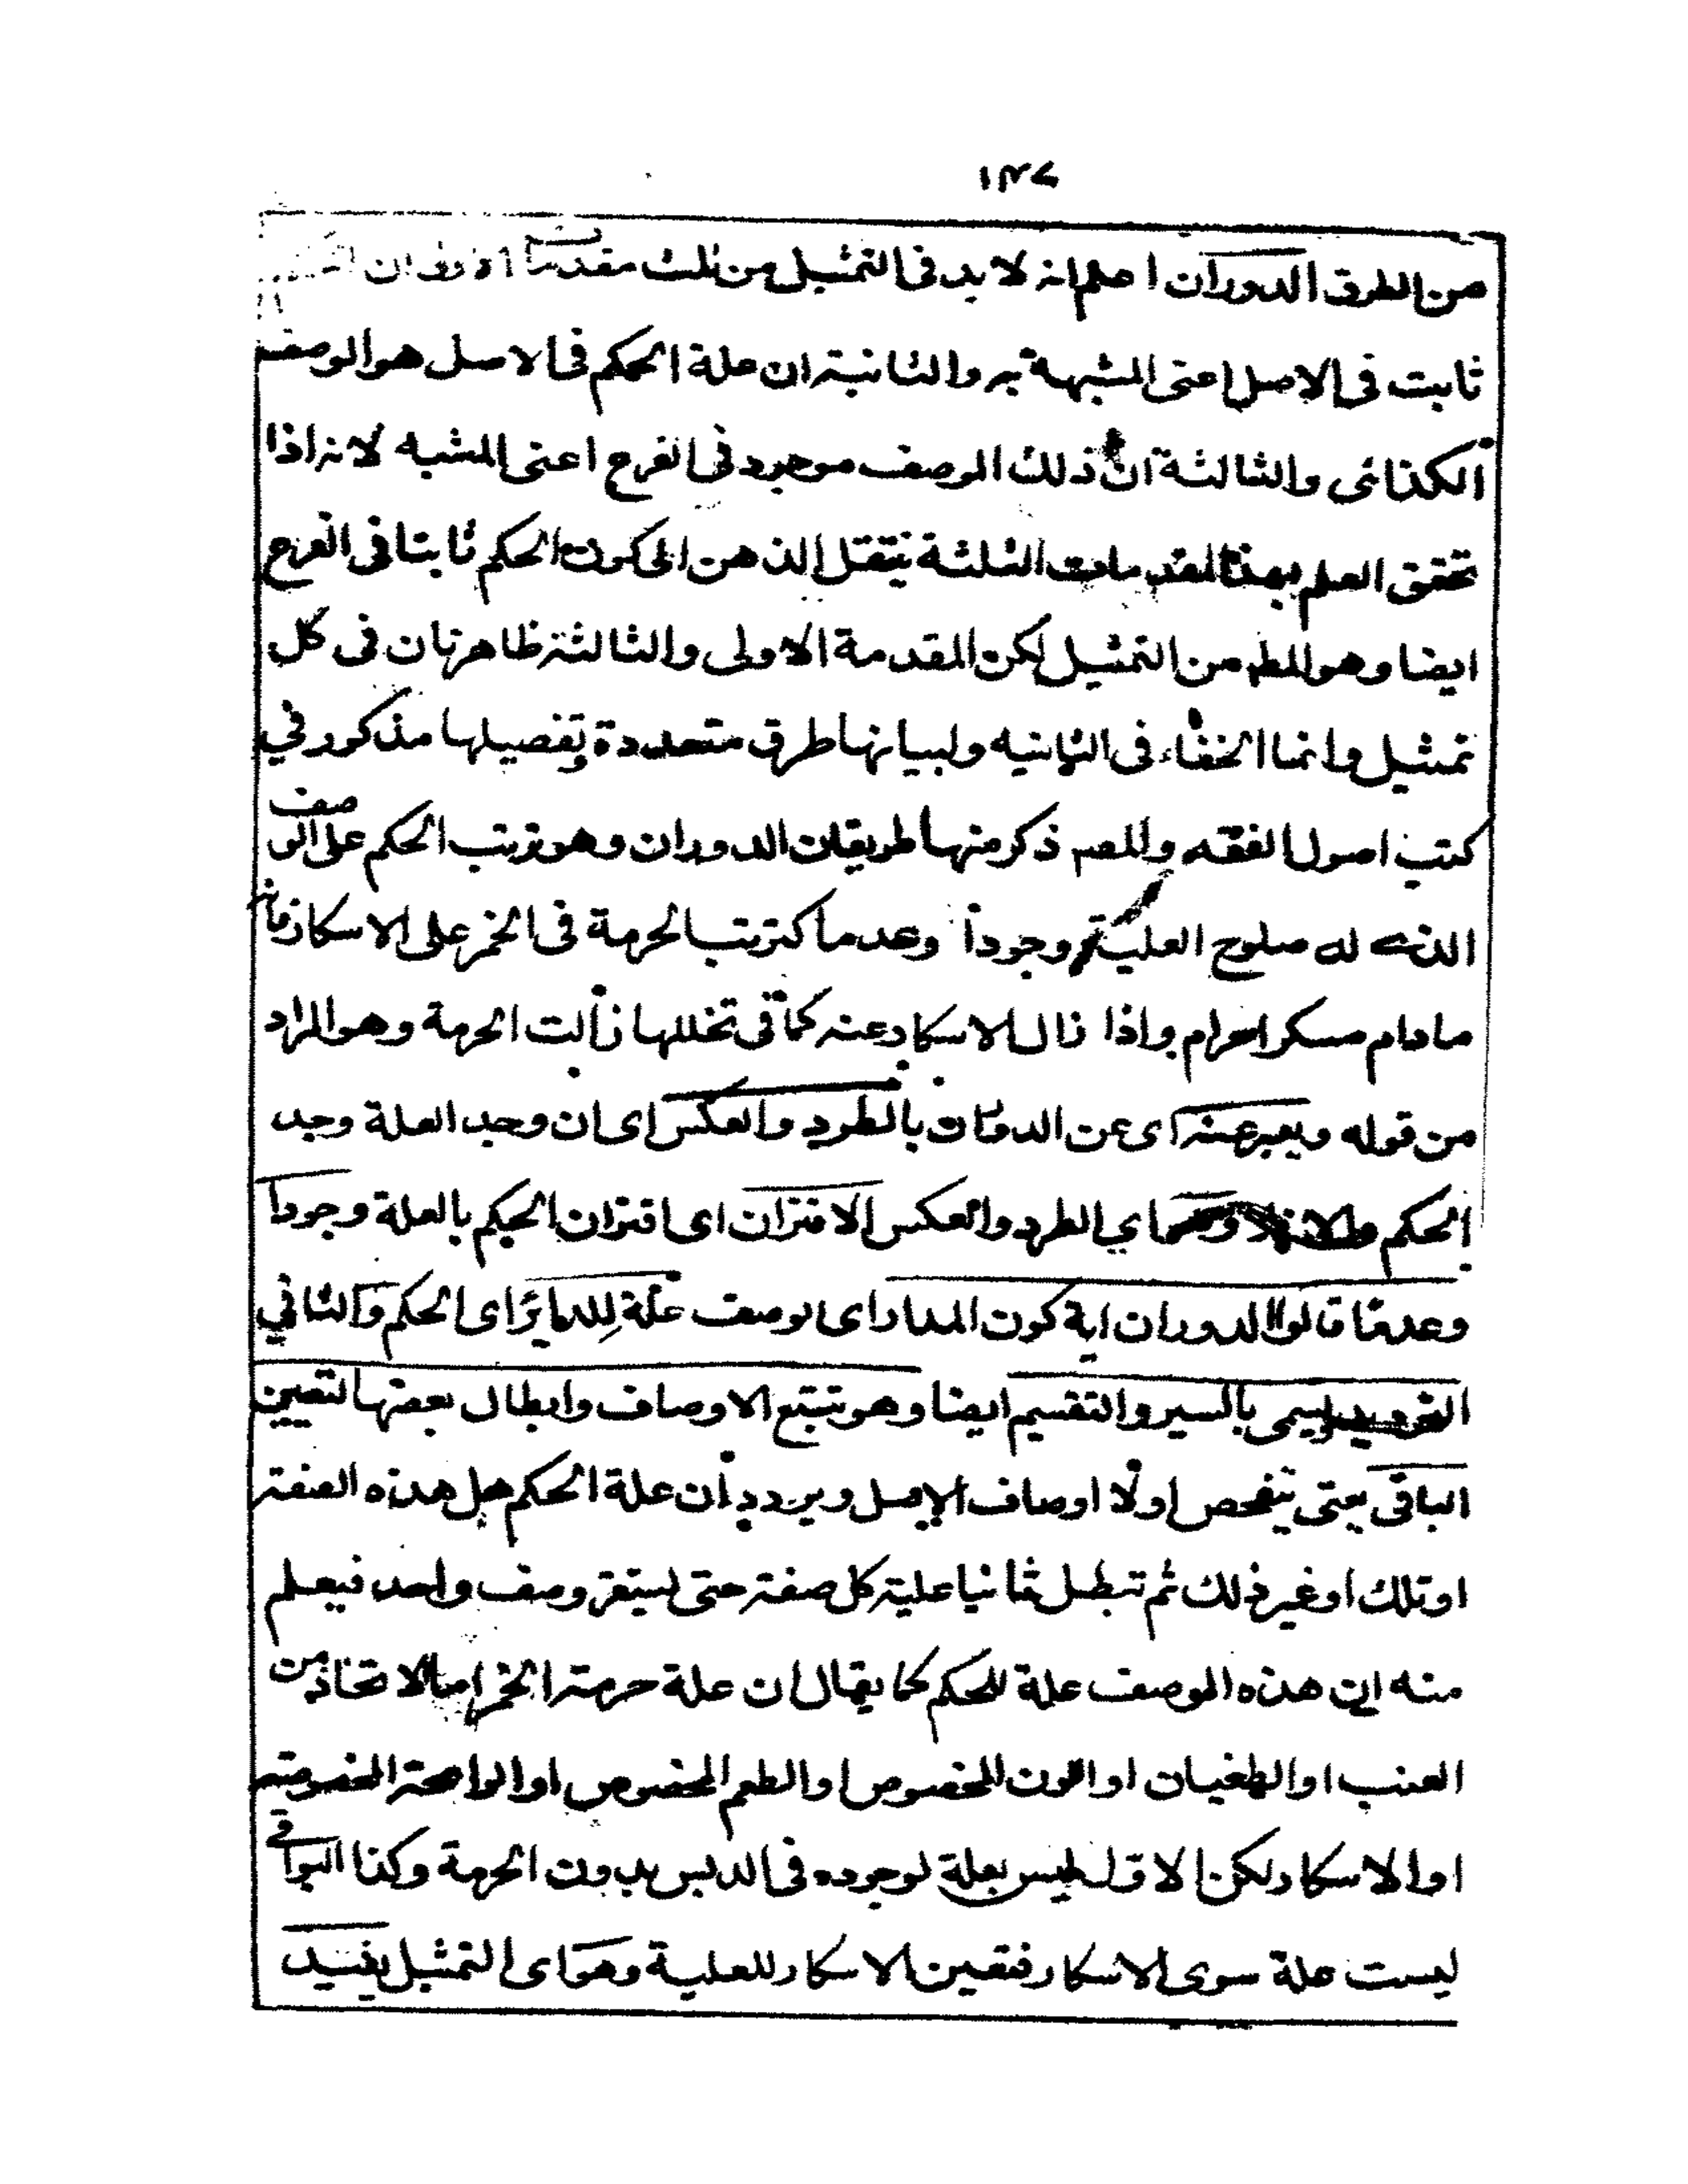 ١٣٧
من الطرق الدوران اعلم انه لا بد فى التمثيل من ثلث مقدمات الاولى ان
ثابت فى الاصل اعنى المشبهة به والثانية ان علة الحكم فى الاصل هو الوصف
الكذائى والثالثة ان ذلك الوصف موجود فى الفرع اعنى المشبه لانه اذا
تحقق العلم بهذا المقدمات الثلثة ينتقل الذهن الى كون الحكم ثابتا فى الفرع
ايضا وهو المط من التمثيل لكن المقدمة الاولى والثالثة ظاهرتان فى كل
تمثيل وانما الخفاء فى الثانيه ولبيانها طرق متعددة وتفصيلها مذكور في
كتب اصول الفقه والمصـ ذكر منها طريقان الدوران وهو ترتب الحكم على الوصف
الذى له صلوح العلية وجوداً وعدما كترتب الحرمة فى الخمر على الاسكار فانه
مادام مسكرا حرام واذا زال الاسكار عنه كما فى تخللها زالت الحرمة وهو المراد
من قوله ويعبر عنه اى عن الدوران بالطرد والعكس اى ان وجد العلة وجد
الحكم والا فلا وهما اي الطرد والعكس الاقتران اى اقتران الحكم بالعلة وجوداً
وعدما قالوا الدوران اية كون المدار اى الوصف علة للدائر اى الحكم والثاني
الترديد ويسمى بالسير والتقسيم ايضا وهو تتبع الاوصاف وابطال بعضها لتعيين
الباقى يعنى يتفحص اولا اوصاف الاصل ويردد ان علة الحكم هل هذه الصفة
او تلك او غير ذلك ثم تبطل ثانيا علية كل صفة حتى يستقر وصف واحد فيعلم
منه ان هذه الوصف علة للحكم كما يقال ان علة حرمة الخمر اما الاتخاذ من
العنب او الطغيان او اللون المخصوص او الطعم المخصوص او الرائحة المخصوصة
او الاسكار لكن الاول ليس بعلة لوجوده فى الدبس بدون الحرمة وكذا البواقى
ليست علة سوى الاسكار فتعين الاسكار للعلية وهو اى التمثيل يفيد